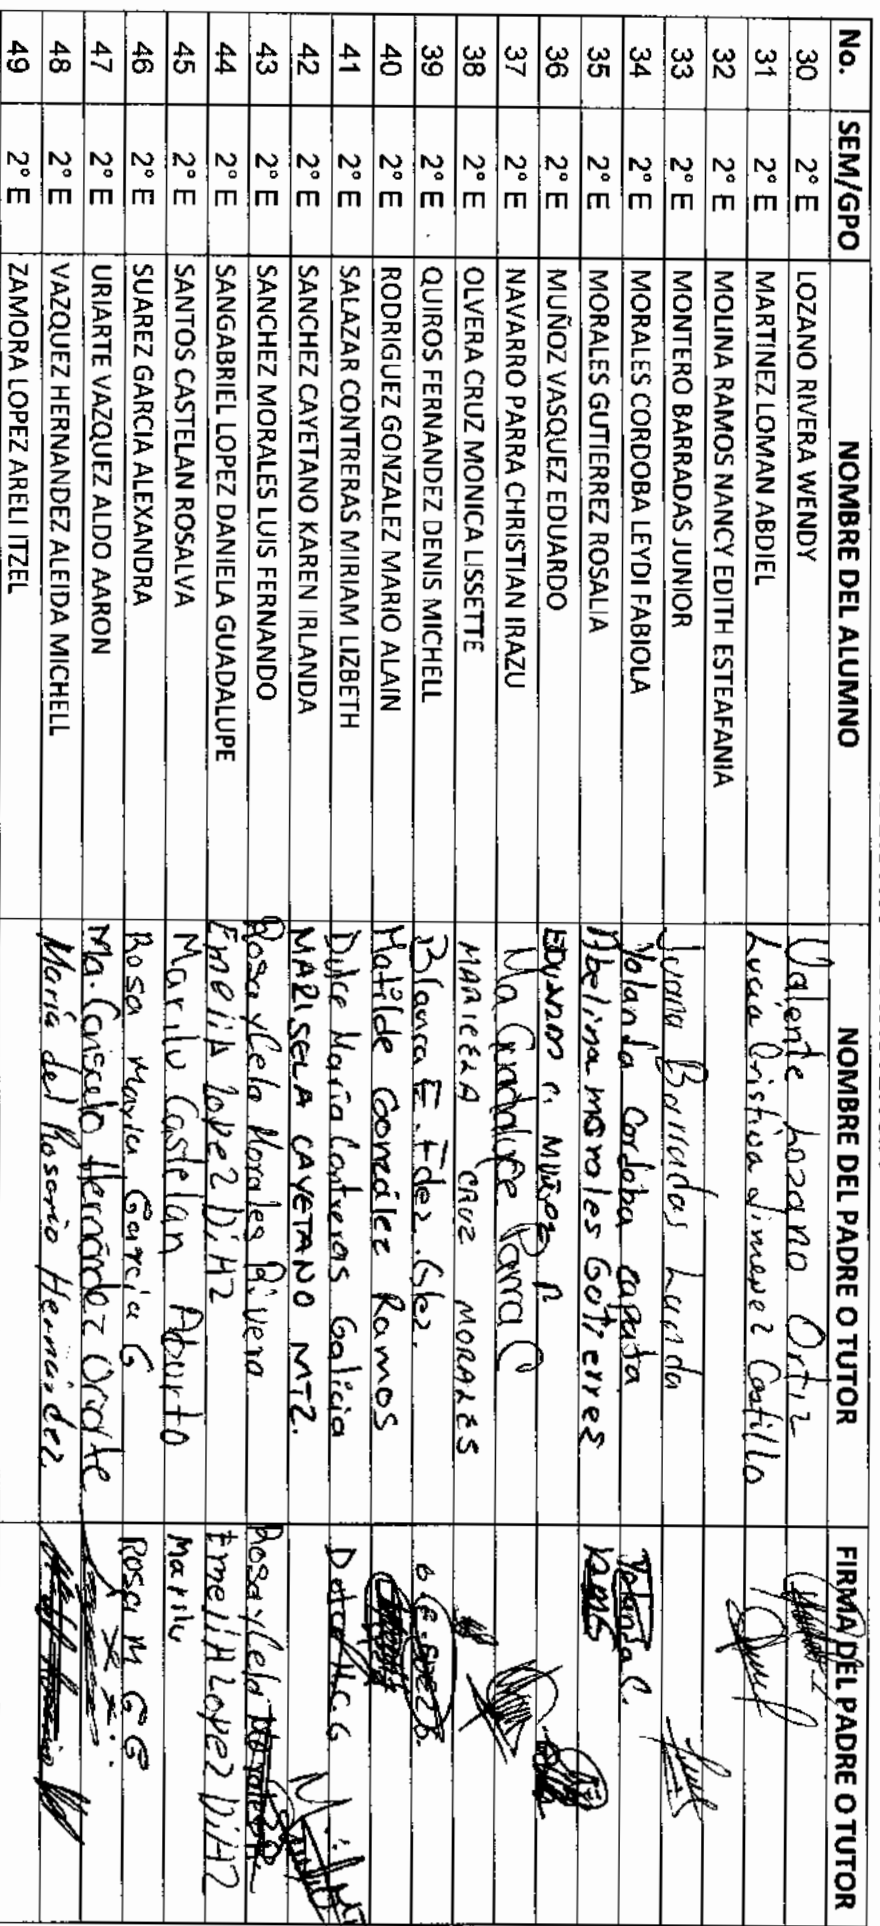 No. SEM/GPO NOMBRE DEL ALUMNO NOMBRE DEL PADRE O TUTOR FIRMA DEL PADRE O TUTOR
30 2° E LOZANO RIVERA WENDY Valente Lozano Ortiz
31 2° E MARTINEZ LOMAN ABDIEL Lucia Cristina Jimenez Castillo
32 2° E MOLINA RAMOS NANCY EDITH ESTEAFANIA
33 2° E MONTERO BARRADAS JUNIOR Juana Barradas Landa
34 2° E MORALES CORDOBA LEYDI FABIOLA Yolanda Cordoba zapata Yolanda C.
35 2° E MORALES GUTIERREZ ROSALIA Abelina morales Gutierres
36 2° E MUÑOZ VASQUEZ EDUARDO EDUARDO MUÑOZ
37 2° E NAVARRO PARRA CHRISTIAN IRAZU Ma Guadalupe Parra C
38 2° E OLVERA CRUZ MONICA LISSETTE MARICELA CRUZ MORALES
39 2° E QUIROS FERNANDEZ DENIS MICHELL Blanca E. Fdez. Glez.
40 2° E RODRIGUEZ GONZALEZ MARIO ALAIN Matilde González Ramos
41 2° E SALAZAR CONTRERAS MIRIAM LIZBETH Dulce María Contreras Galicia Dulce M.C.G
42 2° E SANCHEZ CAYETANO KAREN IRLANDA MARISELA CAYETANO MTZ.
43 2° E SANCHEZ MORALES LUIS FERNANDO Rosa ycela Morales Rivera Rosa ycela Morales R.
44 2° E SANGABRIEL LOPEZ DANIELA GUADALUPE EmeliA Lopez DiAz EmeliA Lopez DiAz
45 2° E SANTOS CASTELAN ROSALVA Marilu Castelan Aburto Marilu
46 2° E SUAREZ GARCIA ALEXANDRA Rosa María García G Rosa M G G
47 2° E URIARTE VAZQUEZ ALDO AARON Ma. Consuelo Hernández Uriarte
48 2° E VAZQUEZ HERNANDEZ ALEIDA MICHELL María del Rosario Hernández.
49 2° E ZAMORA LOPEZ ARELI ITZEL